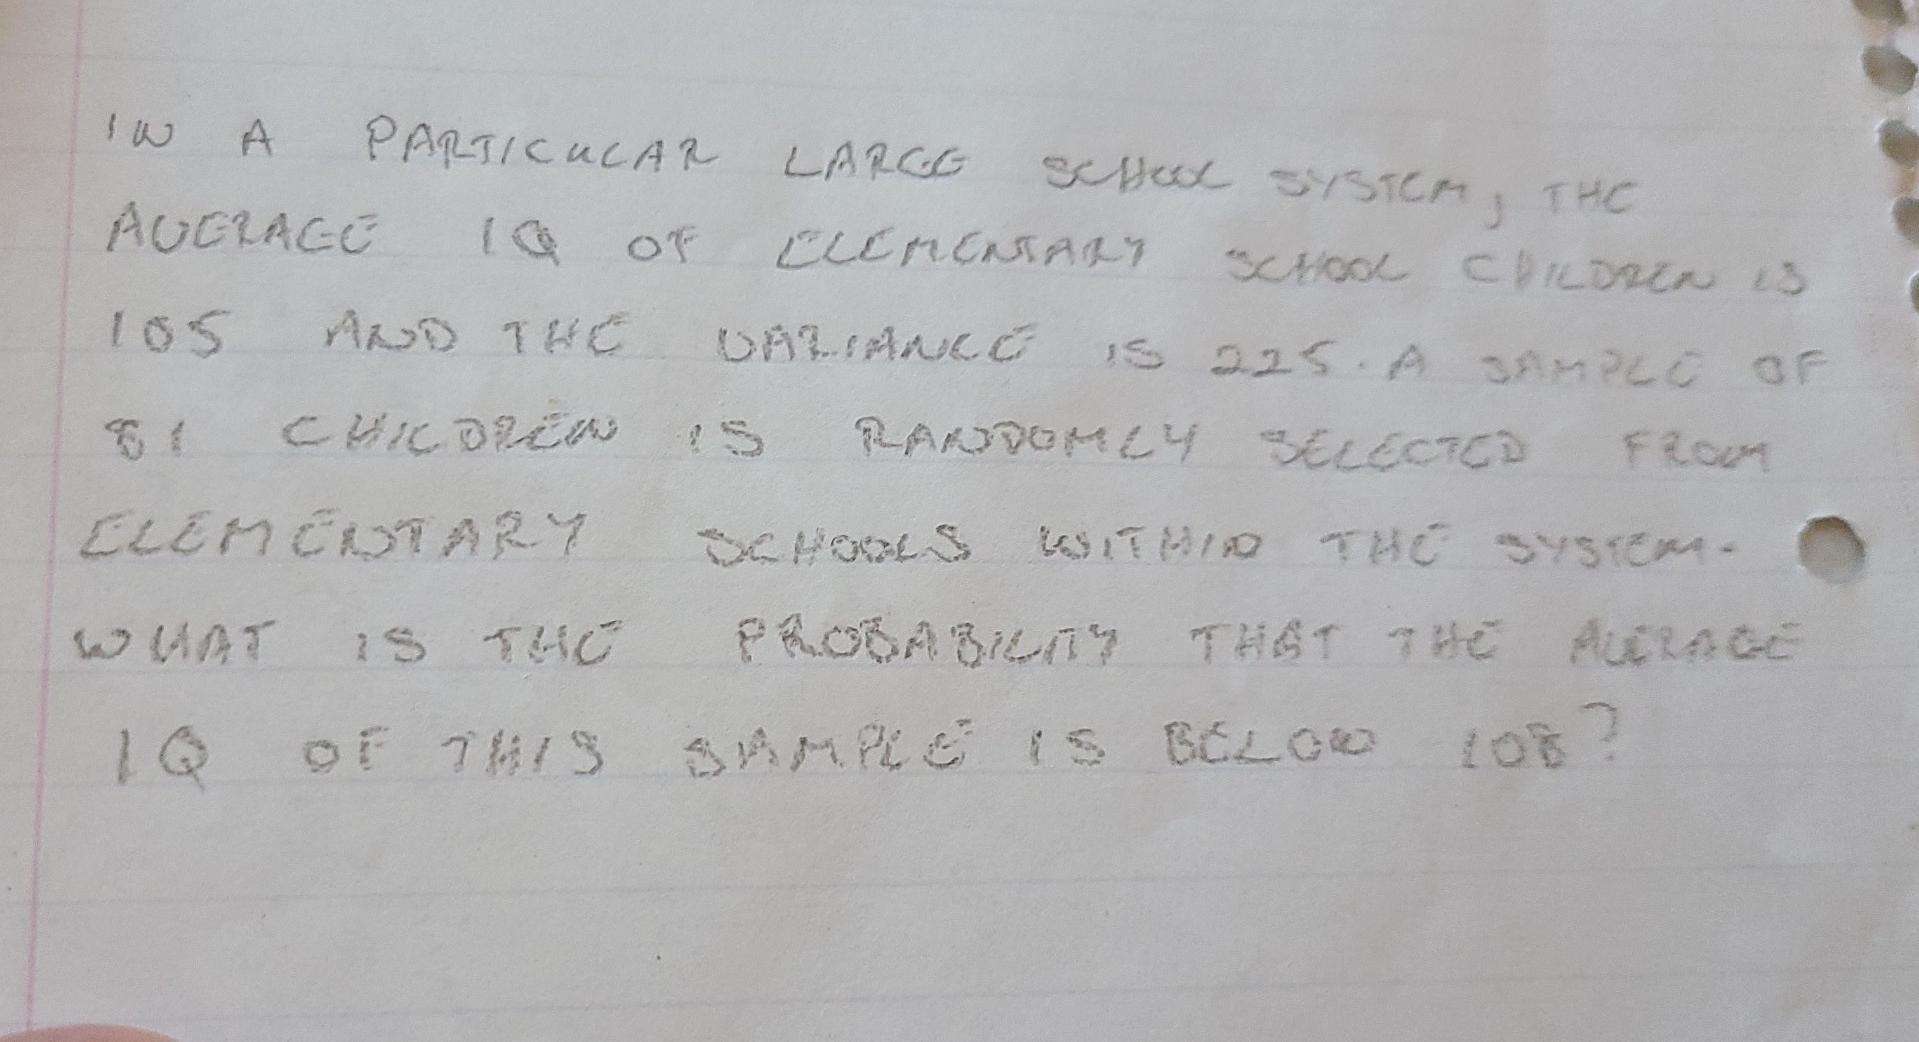 IN A PARTICULAR LARGE SCHOOL SYSTEM, THE
AVERAGE IQ OF ELEMENTARY SCHOOL CHILDREN IS
105 AND THE VARIANCE IS 225. A SAMPLE OF
81 CHILDREN IS RANDOMLY SELECTED FROM
ELEMENTARY SCHOOLS WITHIN THE SYSTEM.
WHAT IS THE PROBABILITY THAT THE AVERAGE
IQ OF THIS SAMPLE IS BELOW 108?